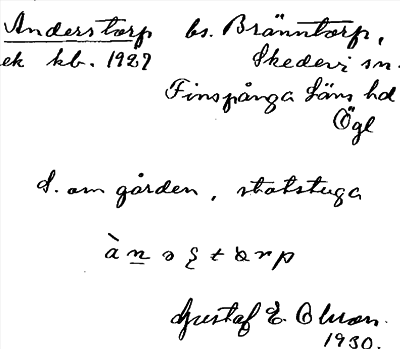 Anderstorp bs. Bränntorp,
ek kb. 1927 Skedevi sn.
Finspånga läns hd
Ögl
S. om gården, statstuga
Gustaf E. Olsson.
1930.